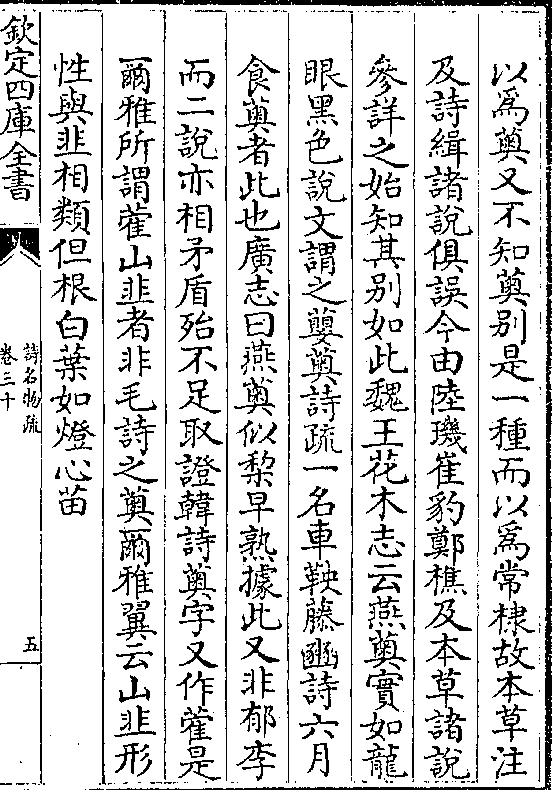 以爲薁又不知薁别是一種而以爲常棣故本草注
及詩緝諸說俱誤今由陸璣崔豹鄭樵及本草諸說
參詳之始知其别如此魏王花木志云燕薁實如龍
眼黑色說文謂之蘡薁詩疏一名車鞅藤豳詩六月
食薁者此也廣志曰燕薁似梨早熟據此又非郁李
而二說亦相矛盾殆不足取證韓詩薁字又作蒮是
爾雅所謂蒮山韭者非毛詩之薁爾雅翼云山韭形
性與韭相類但根白葉如燈心苗
欽定四庫全書
詩名物疏
卷三十
五